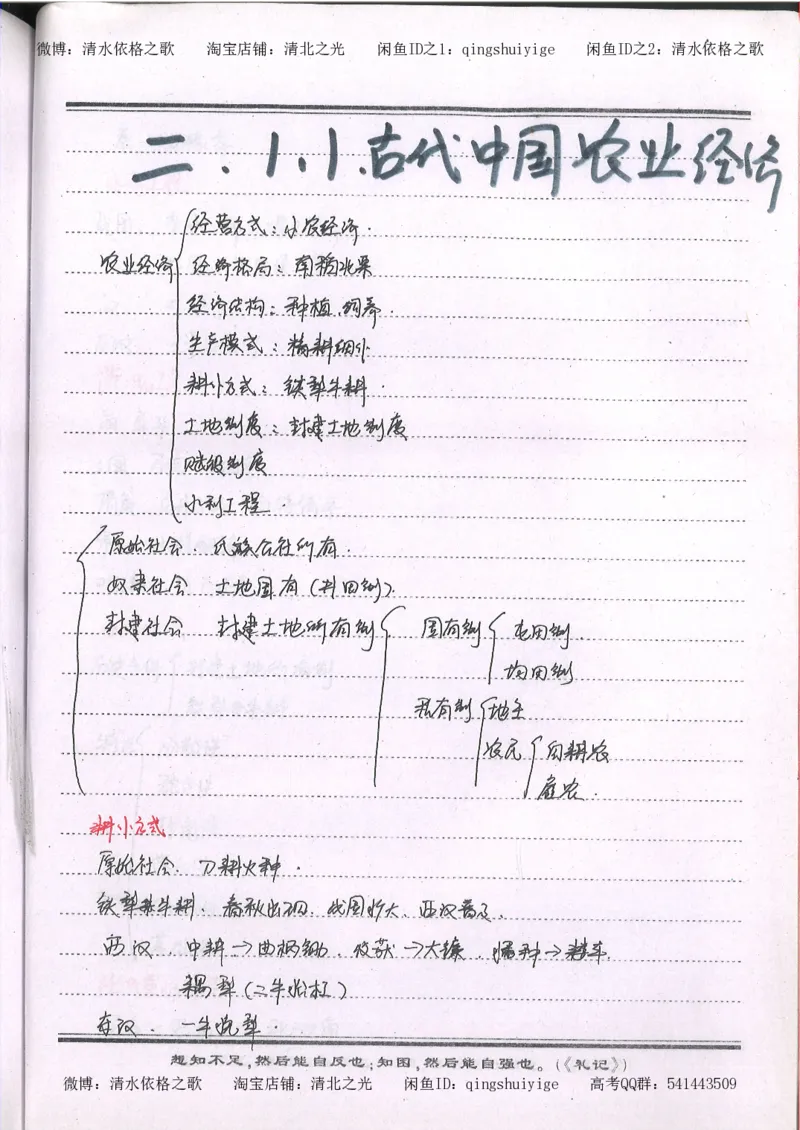 微博：清水依格之歌 淘宝店铺：清北之光 闲鱼ID之1：qingshuiyige 闲鱼ID之2：清水依格之歌
二.1.1.古代中国农业经济
经营方式：小农经济.
农业经济 经济格局：南稻北粟
经济结构：种植.饲养.
生产模式：精耕细作
耕作方式：铁犁牛耕.
土地制度：封建土地制度
赋役制度
水利工程.
原始社会.氏族公社所有.
奴隶社会 土地国有(井田制).
封建社会 封建土地所有制 国有制 屯田制.
均田制
私有制 地主
农民 自耕农
雇农.
耕作方式
原始社会.刀耕火种.
铁犁牛耕.春秋出现.战国扩大.西汉普及.
西汉.中耕→曲柄锄.收获→大镰.播种→耧车.
耦犁(二牛抬杠)
东汉.一牛挽犁.
想知不足,然后能自反也;知困,然后能自强也。(《礼记》)
微博：清水依格之歌 淘宝店铺：清北之光 闲鱼ID：qingshuiyige 高考QQ群：541443509